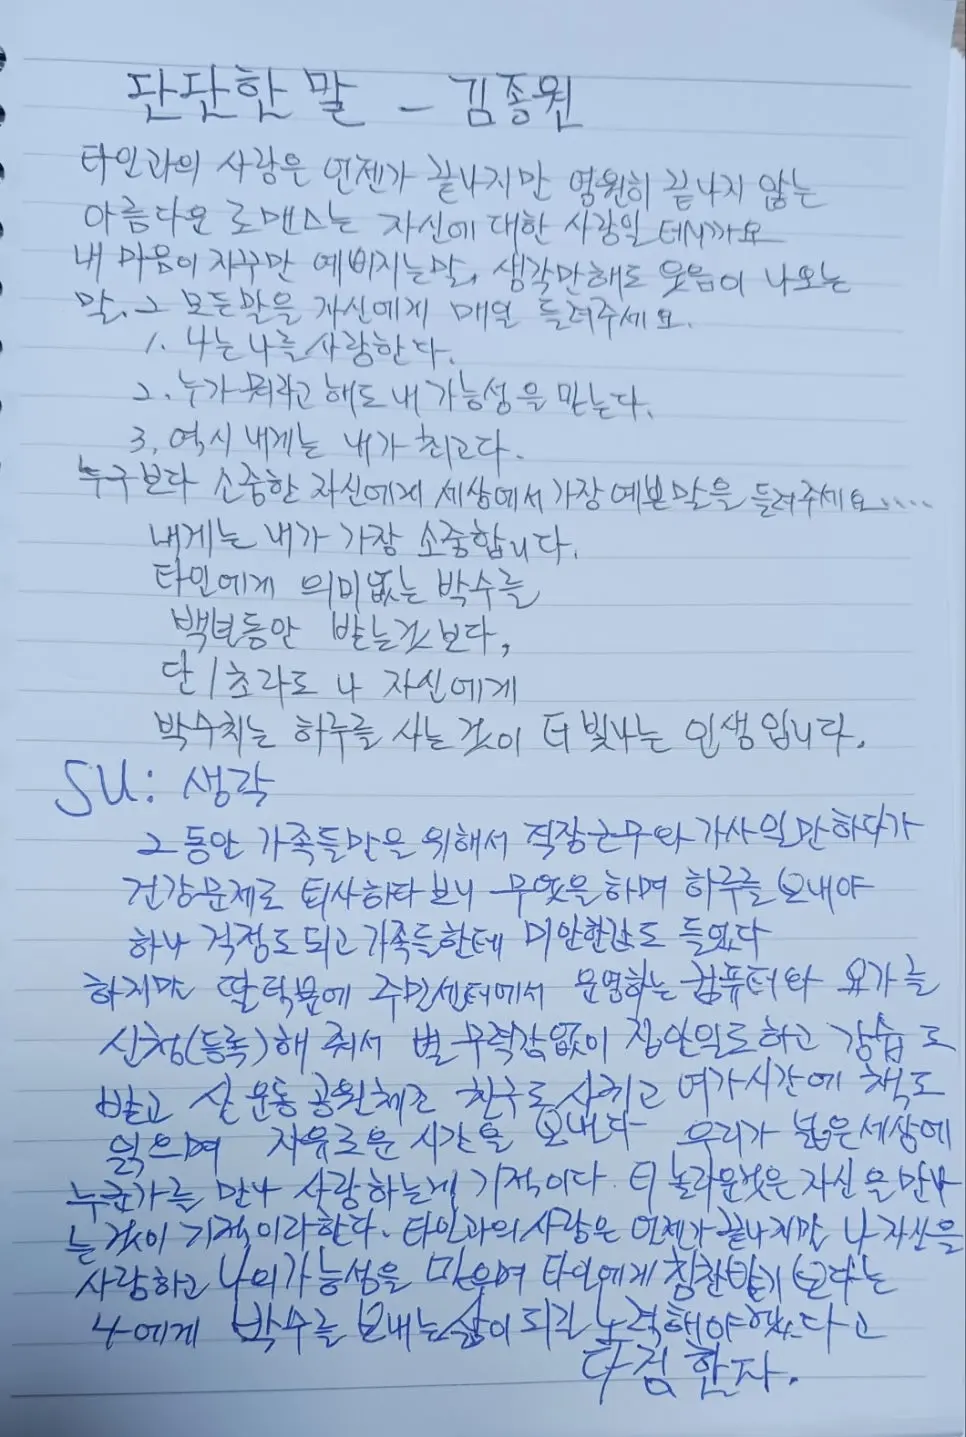 단단한 말 - 김종원
타인과의 사랑은 언젠가 끝나지만 영원히 끝나지 않는
아름다운 로맨스는 자신에 대한 사랑일 테니까요
내 마음이 자꾸만 예뻐지는말, 생각만해도 웃음이 나오는
말, 그 모든말을 자신에게 매일 들려주세요.
1. 나는 나를 사랑한다.
2. 누가 뭐라고 해도 내 가능성을 믿는다.
3. 역시 내게는 내가 최고다.
누구보다 소중한 자신에게 세상에서 가장 예쁜말을 들려주세요....
내게는 내가 가장 소중합니다.
타인에게 의미없는 박수를
백년동안 받는것보다,
단 1초라도 나 자신에게
박수치는 하루를 사는 것이 더 빛나는 인생입니다.
SU: 생각
그동안 가족들만을 위해서 직장근무와 가사일만하다가
건강문제로 퇴사하다 보니 무엇을하며 하루를 보내야
하나 걱정도되고 가족들한테 미안한감도 들었다
하지만 딸 덕분에 주민센터에서 운영하는 컴퓨터와 요가를
신청(등록)해 줘서 별 무력감없이 집안일도하고 강습도
받고 산 운동 공원체조 친구도 사귀고 여가시간에 책도
읽으며 자유로운 시간을 보내다 우리가 넓은세상에
누군가를 만나 사랑하는게 기적이다. 더 놀라운것은 자신을만나
는것이 기적이라한다. 타인과의사랑은 언젠가 끝나지만 나자신을
사랑하고 나의가능성을 믿으며 타인에게 칭찬받기 보다는
나에게 박수를 보내는 삶이 되길 노력해야겠다고
다짐한다.